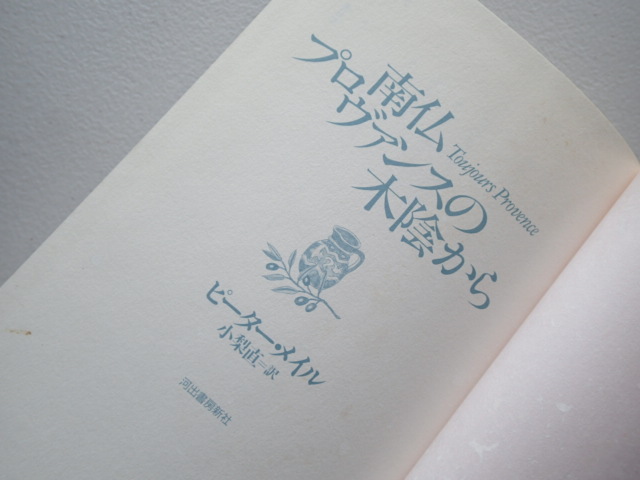 南仏
プロヴァンスの
木陰から
Toujours Provence
ピーター・メイル
小梨直=訳
河出書房新社